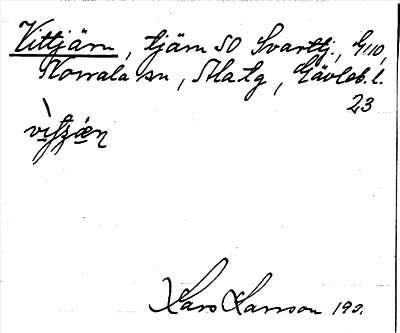 Vittjärn, tjärn SO Svarttj., G110,
Norrala sn, Ala tg, Gävleb. l.
23
Lars Larsson 190.